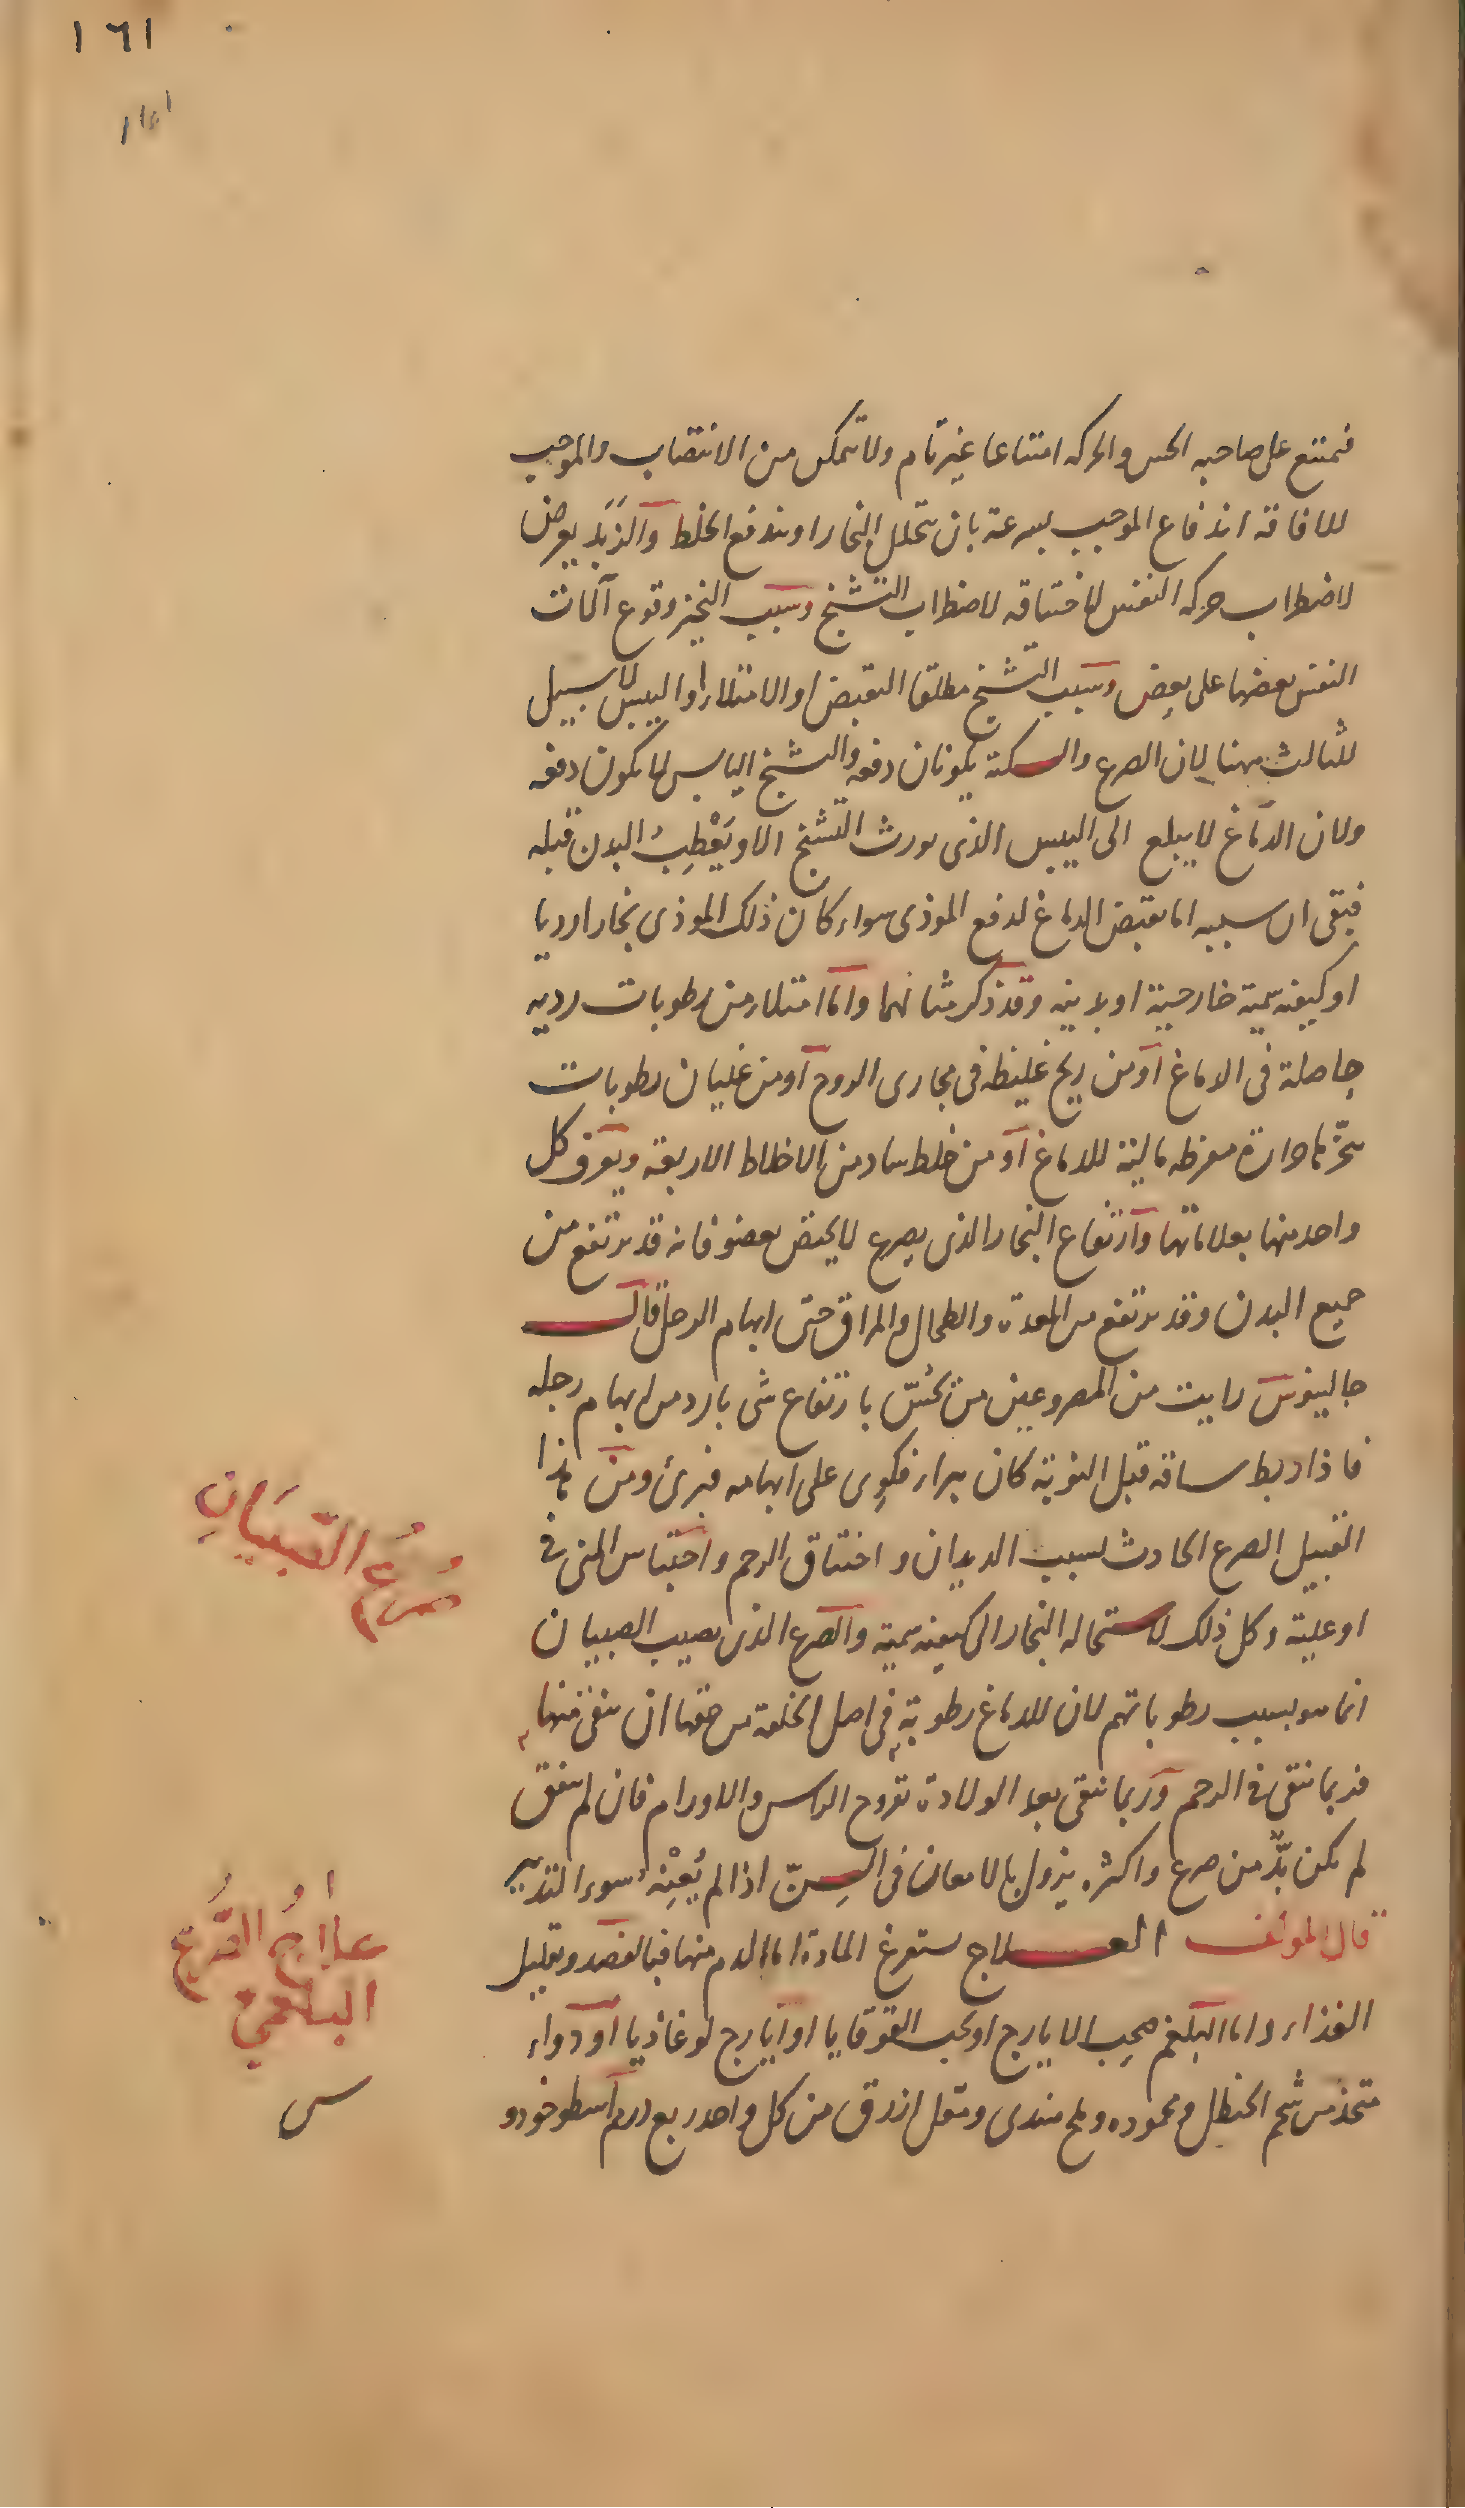 ١٦١
١٤١
فيمتنع على صاحبه الحس والحركه امتناعا غير تام ولا تمكن من الانتصاب والموجب
للافاقة اندفاع الموجب بسرعة بان يتحلل البخار او يندفع الخلط والزَبَد يعرض
لاضطراب حركه النفس لاختناقه لاضطراب التشنج وسبب النخير وقوع آلات
النفس بعضها على بعض وسبب التشنج مطلقا التقبض او الامتلاء او اليبس لا سبيل
للثالث ههنا لان الصرع والسكتة يكونان دفعه والتشنج اليابس لا يكون دفعه
ولان الدماغ لا يبلع الى اليبس الذى يورث التشنج الا ويَعْطِبُ البدن قبله
فبقى ان سببه اما تقبض الدماغ لدفع الموذى سواء كان ذلك الموذى بخارا رديا
او كيفيه سمية خارجية او بدنيه وقد ذكر مثالهما واما امتلاء من رطوبات رديه
حاصلة فى الدماغ او من ريح غليظه فى مجارى الروح او من غليان رطوبات
حرارة مفرطه مالية للدماغ او من خلط ساد من الاخلاط الاربعة ويعرف كل
واحد منها بعلاماتها وارتفاع البخار الذى يصرع لا يختص بعضو فانه قد يرتفع من
جميع البدن وقد يرتفع من المعدة والطحال والمراق حتى ابهام الرجل قال
جالينوس رايت من المصروعين من يحُسّ بارتفاع شى بارد من ابهام رجله
فاذا ربط ساقه قبل النوبة كان يبراء فكوى على ابهامه فبرئ ومن هذا
القبيل الصرع الحادث بسبب الديدان واختناق الرحم واحتباس المنى فى
اوعليته وكل ذلك لاستحاله البخار الى كيفيه سمية والصرع الذى يصيب الصبيان
انما هو بسبب رطوباتهم لان للدماغ رطوبة فى اصل الخلقة من حقها ان تنقى منها
فربما تنقى فى الرحم وربما تنقى بعد الولادة بقروح الراس والاورام فان لم تنق
لم يكن بدٌّ من صرع واكثره يزول بالامعان فى السِنّ اذا لم يُعِنْه سوء التدبير
قال المولف العلاج يستفرغ المادة اما الدم منها فبالفصد وتقليل
الغذاء واما البلغم فبحب الايارج او بحب القوقايا او ايارج لوغاذيا او دواء
متخذ من شحم الحنظل ومحموده وملح هندى ومقل ازرق من كل واحد ربع درهم اسطوخودو
صَرْعُ الصّبيَانِ
علاجُ الصَّرعِ
البلغمي
س